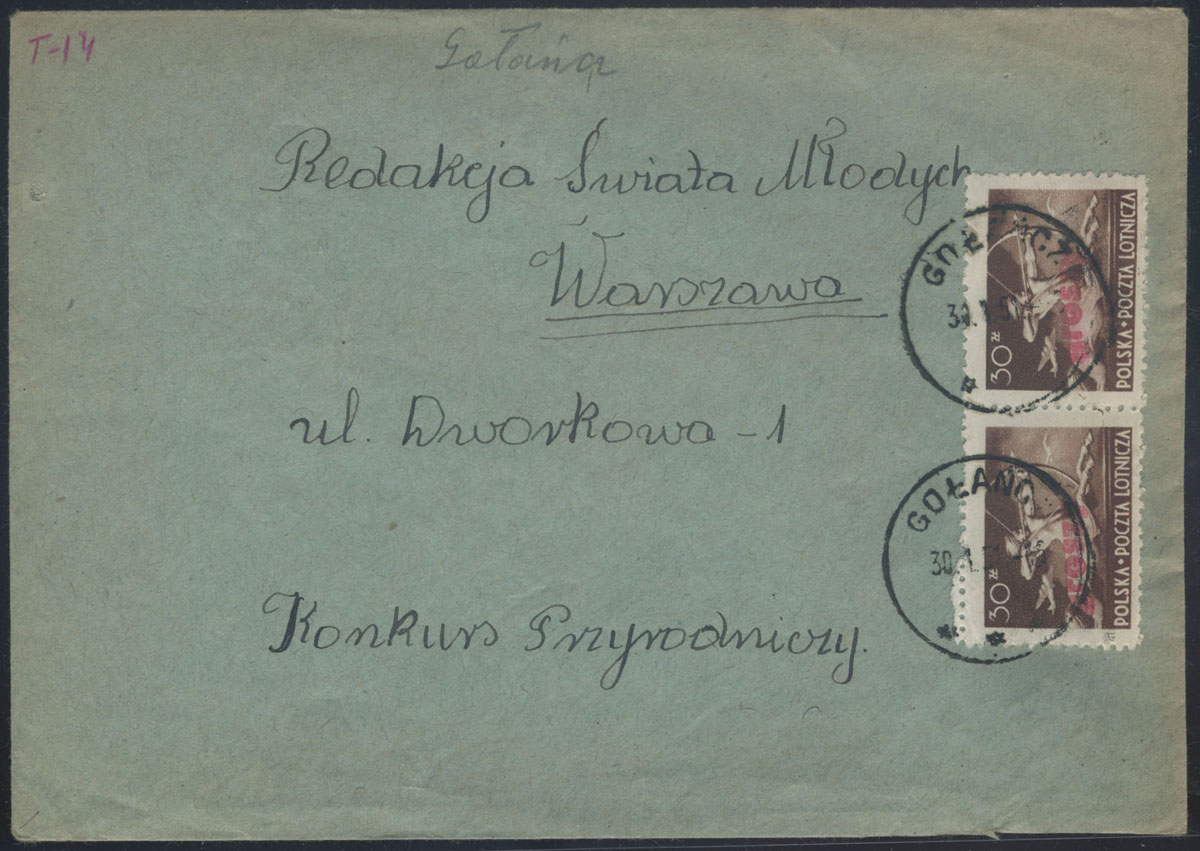 T-14
Gołańcz
Redakcja Świata Młodych
Warszawa
ul. Dworkowa - 1
Konkurs Przyrodniczy.
30 zł
POLSKA • POCZTA LOTNICZA
GOŁAŃCZ
30 zł
POLSKA • POCZTA LOTNICZA
GOŁANC